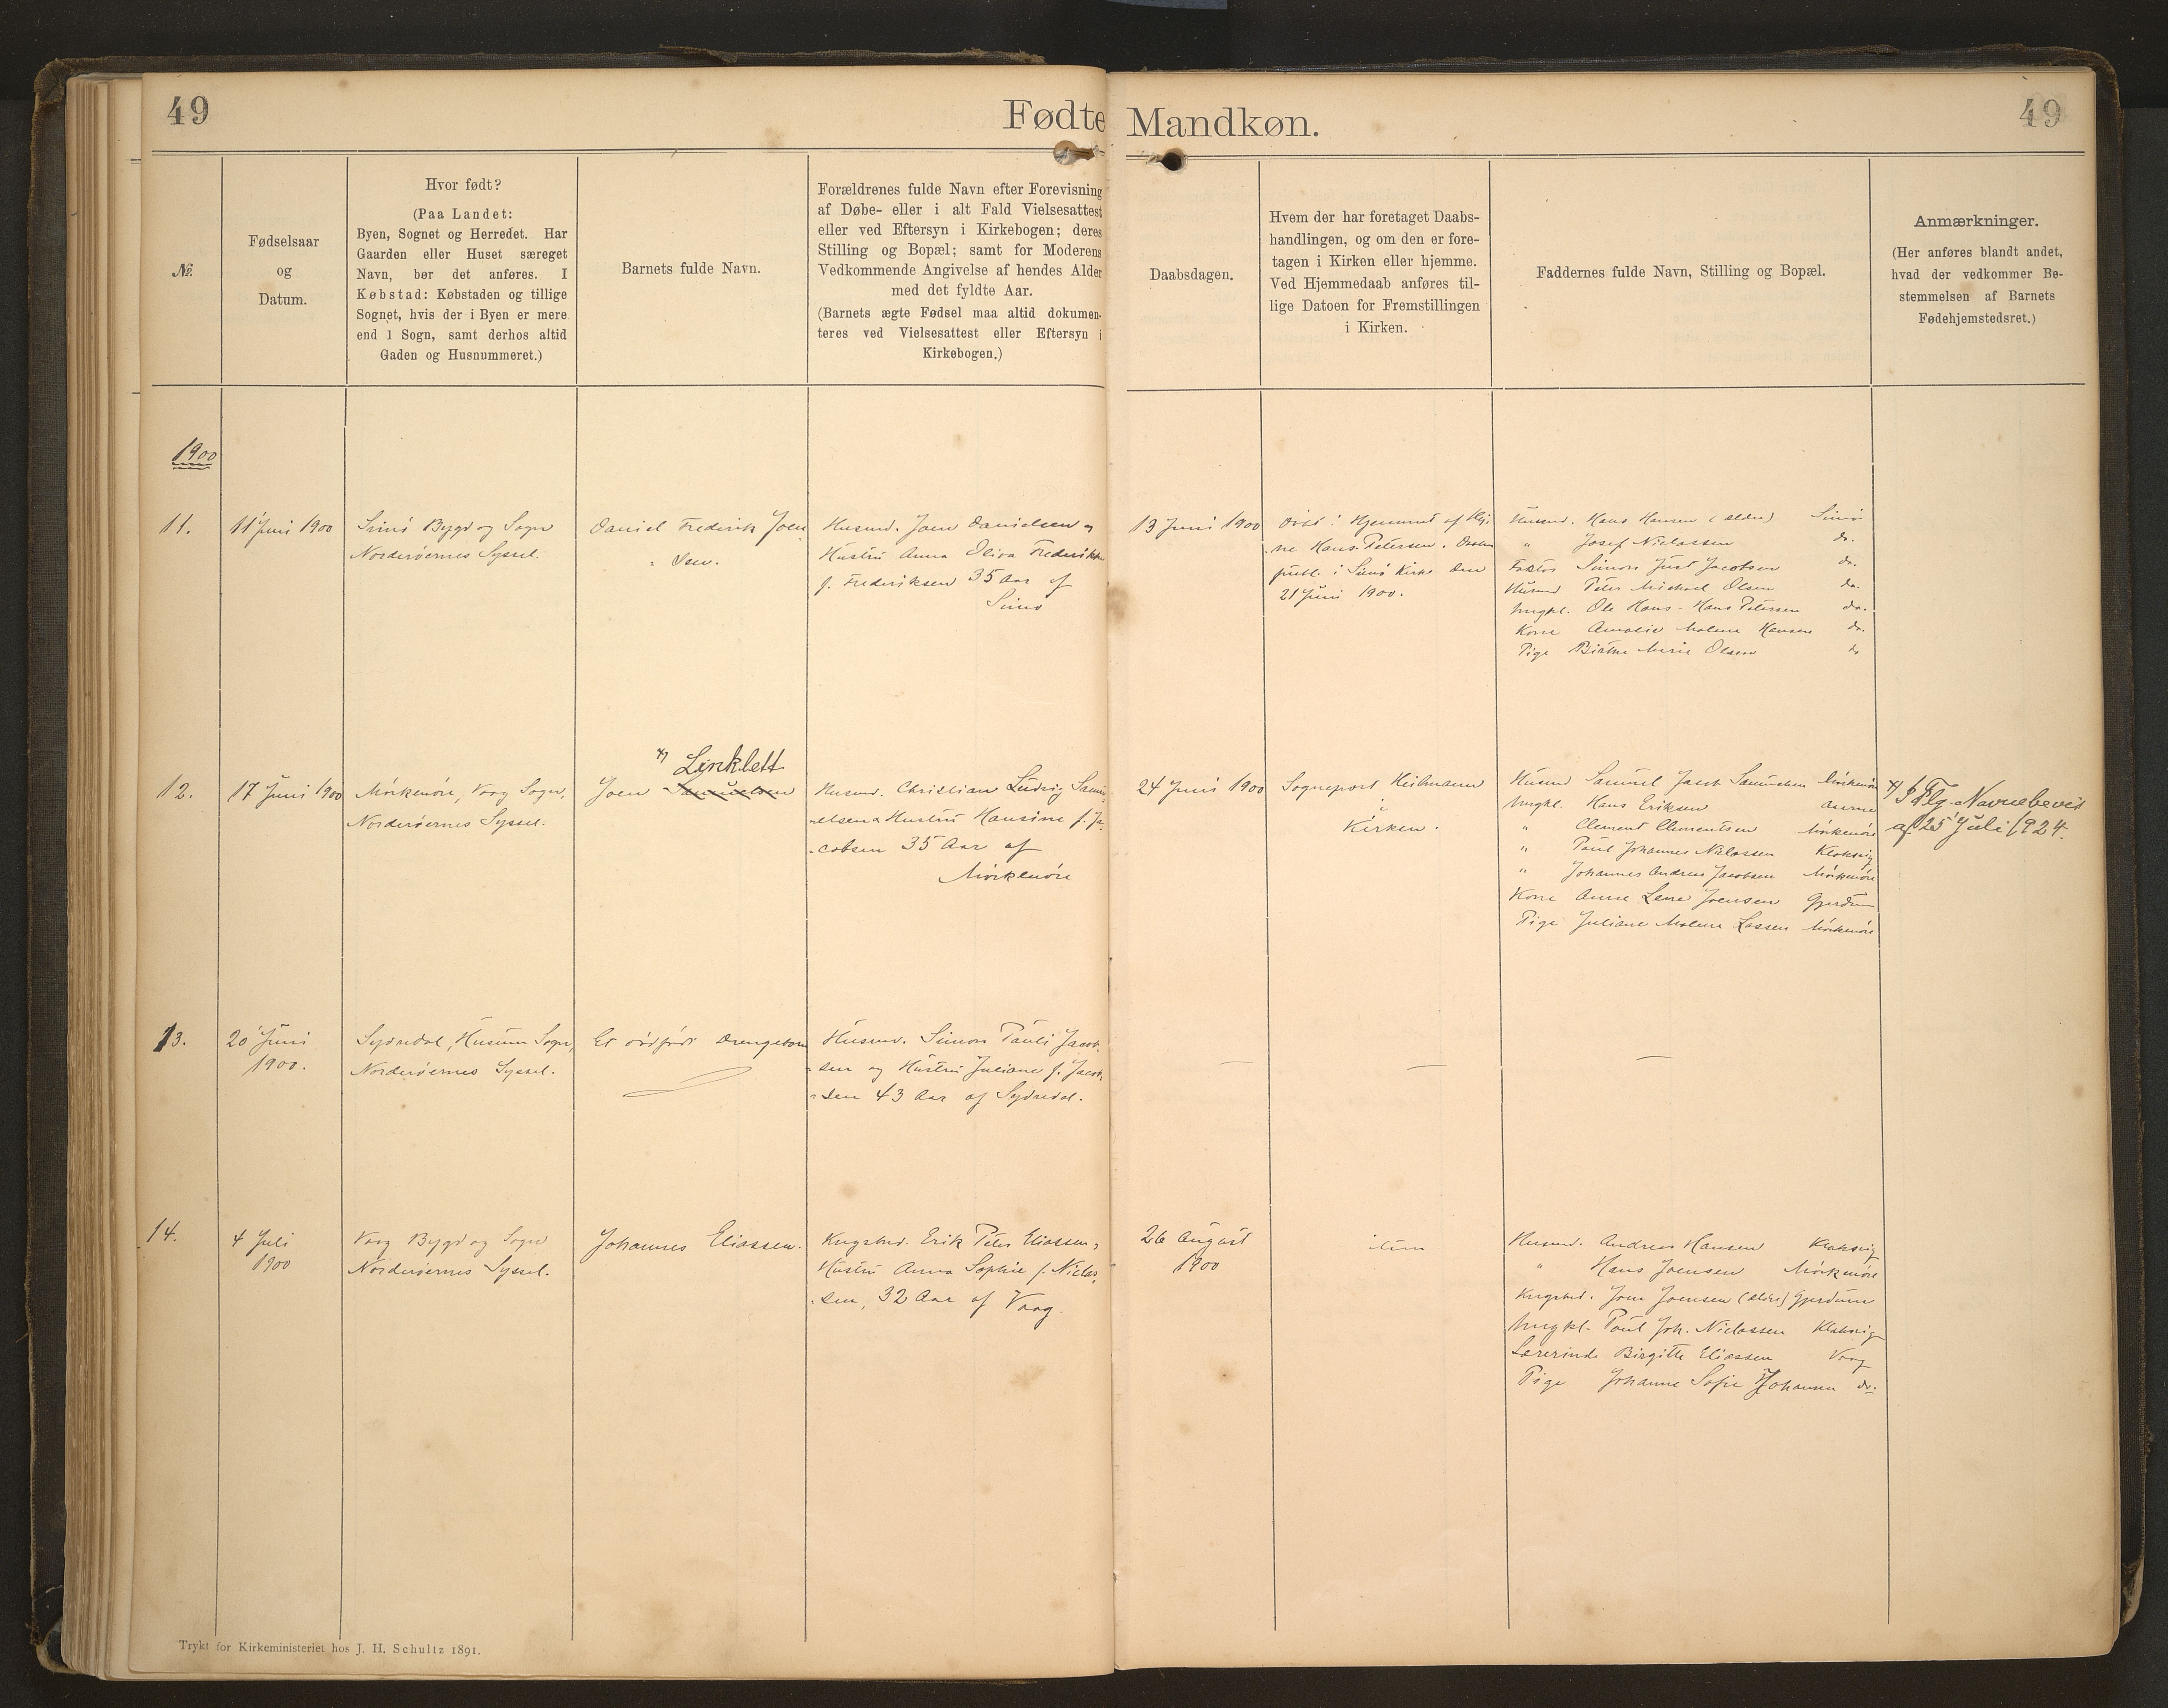 49
Fødte Mandkøn.
49
№
Fødselsaar
og
Datum.
Hvor født?
(Paa Landet:
Byen, Sognet og Herredet. Har
Gaarden eller Huset særeget
Navn, bør det anføres. I
Købstad: Købstaden og tillige
Sognet, hvis der i Byen er mere
end 1 Sogn, samt derhos altid
Gaden og Husnummeret.)
Barnets fulde Navn.
Forældrenes fulde Navn efter Forevisning
af Døbe- eller i alt Fald Vielsesattest
eller ved Eftersyn i Kirkebogen; deres
Stilling og Bopæl; samt for Moderens
Vedkommende Angivelse af hendes Alder
med det fyldte Aar.
(Barnets ægte Fødsel maa altid dokumen-
teres ved Vielsesattest eller Eftersyn i
Kirkebogen.)
Daabsdagen.
Hvem der har foretaget Daabs-
handlingen, og om den er fore-
tagen i Kirken eller hjemme.
Ved Hjemmedaab anføres til-
lige Datoen for Fremstillingen
i Kirken.
Faddernes fulde Navn, Stilling og Bopæl.
Anmærkninger.
(Her anføres blandt andet,
hvad der vedkommer Be-
stemmelsen af Barnets
Fødehjemstedsret.)
1900
11.
11 Juni 1900
Svinø Bygd og Sogn
Norderøernes Syssel.
Daniel Frederik Joen-
sen.
Husmd. Joen Danielsen og
Hustru Anna Oliva Frederikke
f. Frederiksen 35 Aar af
Svinø
13 Juni 1900
Døbt i Hjemmet af
Hans Petersen. Daaben
publ. i Svinø Kirke den
21 Juni 1900.
Husmd. Hans Hansen (ældre) Svinø
" Josef Niclassen do.
Faktor Simon Just Jacobsen do.
Husmd Peter Michael Olsen do.
Ungkl. Ole Hans-Hans Petersen do.
Kone Amalie Malene Hansen do.
Pige Birthe Marie Olsen do
12.
17 Juni 1900
Mórkenóre, Vaag Sogn,
Norderøernes Syssel.
x) Linklett
Joen Samuelsen
Husmd. Christian Ludvig Samu-
elsen & Hustru Hansine f. Ja-
cobsen 35 Aar af
Mórkenóre
24 Juni 1900
Sognepræst Heilmann
i
Kirken.
Husmd Samuel Jacob Samuelsen Mórkenóre
Ungkl. Hans Eriksen
" Clement Clementsen Mórkenóre
" Poul Johannes Niclassen Klaksvig
" Johannes Andreas Jacobsen Mórkenóre
Kone Anne Lene Joensen Gjerdum
Pige Juliane Malene Lassen Mórkenóre
x) Iflg. Navnebevis
af 25' Juli 1924.
13.
20 Juni
1900.
Sydredal, Husum Sogn,
Norderøernes Syssel.
Et dødfødt Drengebarn
Husmd. Simon Pauli Jacob-
sen og Hustru Juliane f. Jacob-
sen 43 Aar af Sydredal.
14.
4 Juli
1900
Vaag Bygd og Sogn
Norderøernes Syssel.
Johannes Eliassen.
Kngsbd. Erik Peter Eliassen,
Hustru Anna Sophie f. Niclas-
sen, 32 Aar af Vaag.
26 August
1900
item
Husmd. Andreas Hansen Klaksvig
" Hans Joensen Mórkenóre
Kngsbd. Joen Joensen (ældre) Gjerdum
Ungkl. Poul Joh. Niclassen Klaksvig
Lærerinde Birgitte Eliassen Vaag
Pige Johanne Sofie Johansen do.
Trykt for Kirkeministeriet hos J. H. Schultz 1891.